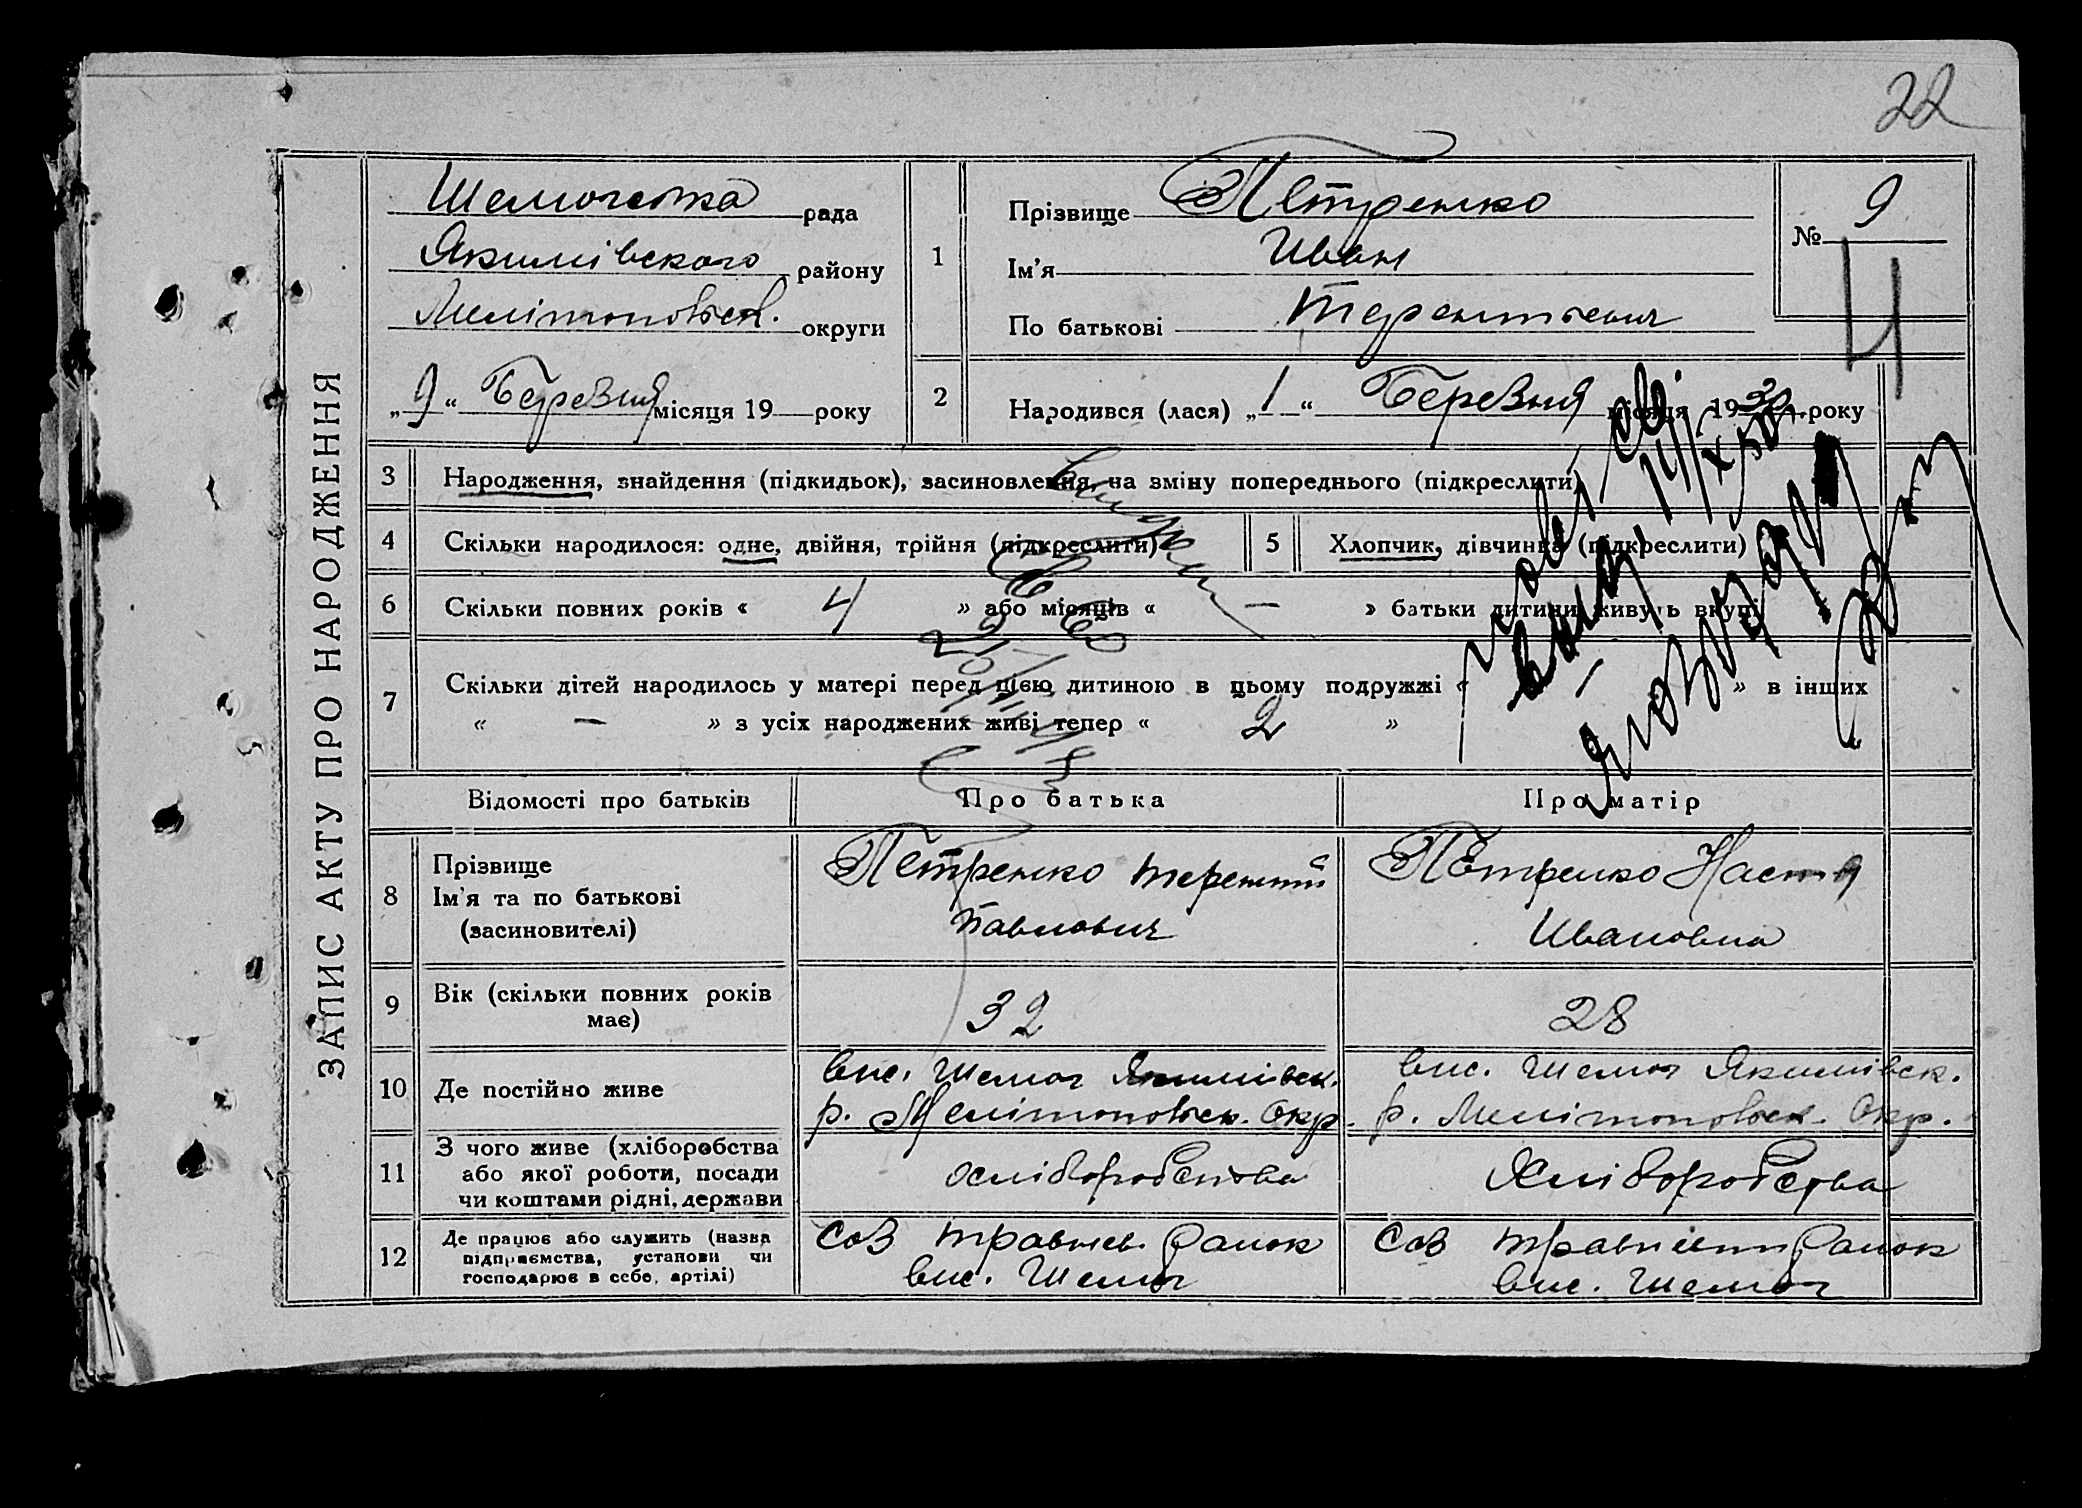 22
ЗАПИС АКТУ ПРО НАРОДЖЕННЯ
рада
Якимівского району
Мелітопольск. округи
„9“ Березня місяця 19 року
1
Прізвище Петренко
Ім'я Иван
По батькові Терентьевич
№ 9
4
2
Народився (лася) „1“ Березня місяця 1930 року
3
Народження, знайдення (підкидьок), засиновлення, на зміну попереднього (підкреслити)
4
Скільки народилося: одне, двійня, трійня (підкреслити)
5
Хлопчик, дівчинка (підкреслити)
6
Скільки повних років « 4 » або місяців « — » батьки дитини живуть вкупі
7
Скільки дітей народилось у матері перед цією дитиною в цьому подружжі « » в інших
« — » з усіх народжених живі тепер « 2 »
Відомості про батьків
Про батька
Про матір
8
Прізвище
Ім'я та по батькові
(засиновителі)
Петренко Терентий
Павлович
Петренко Настя
Ивановна
9
Вік (скільки повних років
має)
32
28
10
Де постійно живе
вис. Шемог Якимівск.
р. Мелітопольск. Окр.
вис. Шемог Якимівск.
р. Мелітопольск. Окр.
11
З чого живе (хліборобства
або якої роботи, посади
чи коштами рідні, держави
хліборобства
Хліборобства
12
Де працює або служить (назва
підприємства, установи чи
господарює в себе, артілі)
Соз Ранок
вис. Шемог
Соз Ранок
вис. Шемог